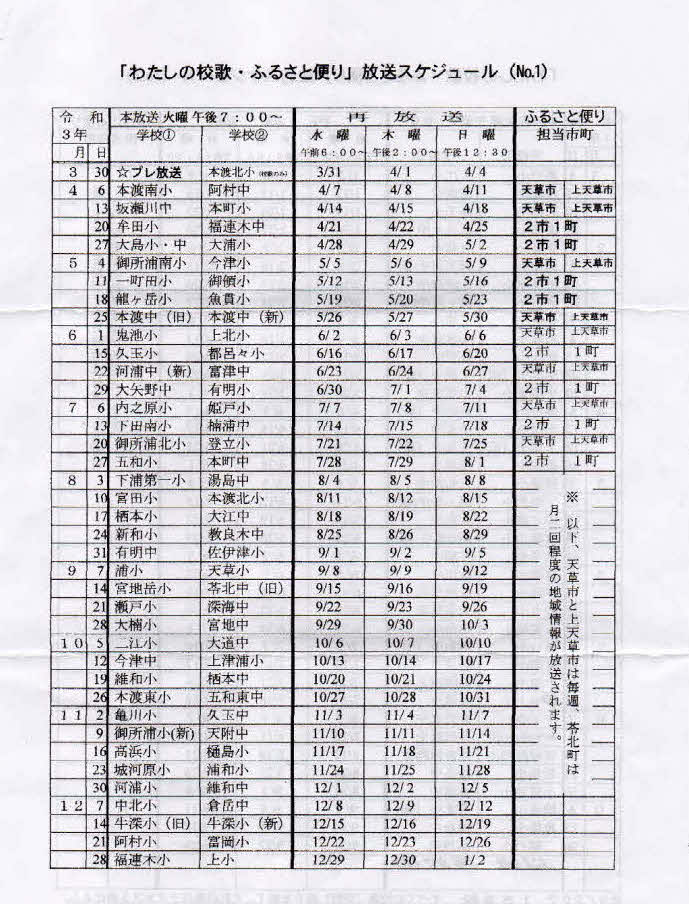 「わたしの校歌・ふるさと便り」放送スケジュール (No.1)
令 和 本放送 火曜 午後７：００～ 再 放 送 ふるさと便り
３年 学校① 学校② 水 曜 木 曜 日 曜 担当市町
月 日 午前６：００～ 午後２：００～ 午後１２：３０
3 30 ☆プレ放送 本渡北小 3/31 4/ 1 4/ 4
4 6 本渡南小 阿村中 4/ 7 4/ 8 4/11 天草市 上天草市
13 坂瀬川中 本町小 4/14 4/15 4/18 天草市 上天草市
20 牟田小 福連木中 4/21 4/22 4/25 ２市１町
27 大島小・中 大浦小 4/28 4/29 5/ 2 ２市１町
5 4 御所浦南小 今津小 5/ 5 5/ 6 5/ 9 天草市 上天草市
11 一町田小 御領小 5/12 5/13 5/16 ２市１町
18 龍ヶ岳小 魚貫小 5/19 5/20 5/23 ２市１町
25 本渡中（旧） 本渡中（新） 5/26 5/27 5/30 天草市 上天草市
6 1 鬼池小 上北小 6/ 2 6/ 3 6/ 6 天草市 上天草市
15 久玉小 都呂々小 6/16 6/17 6/20 ２市 １町
22 河浦中（新） 富津中 6/23 6/24 6/27 天草市 上天草市
29 大矢野中 有明小 6/30 7/ 1 7/ 4 ２市 １町
7 6 内之原小 姫戸小 7/ 7 7/ 8 7/11 天草市 上天草市
13 下田南小 楠浦中 7/14 7/15 7/18 ２市 １町
20 御所浦北小 登立小 7/21 7/22 7/25 天草市 上天草市
27 五和小 本町中 7/28 7/29 8/ 1 ２市 １町
8 3 下浦第一小 湯島中 8/ 4 8/ 5 8/ 8
10 宮田小 本渡北小 8/11 8/12 8/15
17 栖本小 大江中 8/18 8/19 8/22
24 新和小 教良木中 8/25 8/26 8/29
31 有明中 佐伊津小 9/ 1 9/ 2 9/ 5
9 7 浦小 天草小 9/ 8 9/ 9 9/12
14 宮地岳小 苓北中（旧） 9/15 9/16 9/19
21 瀬戸小 深海中 9/22 9/23 9/26
28 大楠小 宮地中 9/29 9/30 10/ 3
１０ 5 二江小 大道中 10/ 6 10/ 7 10/10
12 今津中 上津浦小 10/13 10/14 10/17
19 維和小 栖本中 10/20 10/21 10/24
26 本渡東小 五和東中 10/27 10/28 10/31
１１ 2 亀川小 久玉中 11/ 3 11/ 4 11/ 7
9 御所浦小(新) 天附中 11/10 11/11 11/14
16 高浜小 樋島小 11/17 11/18 11/21
23 城河原小 浦和小 11/24 11/25 11/28
30 河浦小 維和中 12/ 1 12/ 2 12/ 5
１２ 7 中北小 倉岳中 12/ 8 12/ 9 12/ 12
14 牛深小（旧） 牛深小（新） 12/15 12/16 12/19
21 阿村小 富岡小 12/22 12/23 12/26
28 福連木小 上小 12/29 12/30 1/ 2
※ 以下、天草市と上天草市は毎週、苓北町は
月二回程度の地域情報が放送されます。